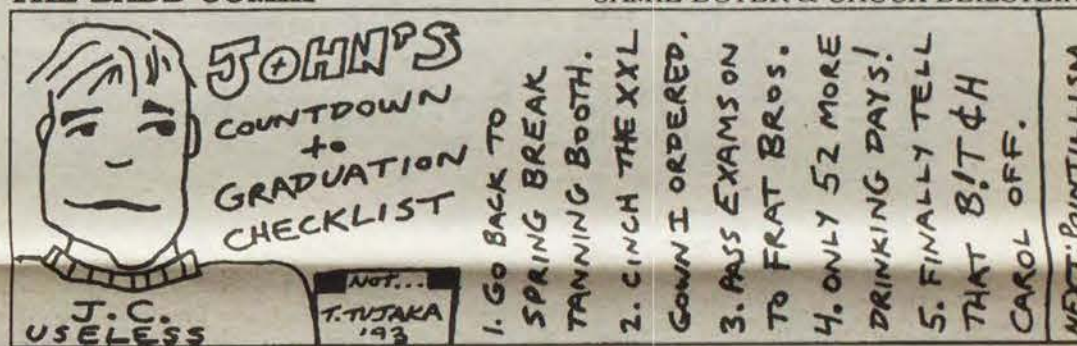 JOHN'S
COUNTDOWN
to
GRADUATION
CHECKLIST
J.C.
USELESS
NOT...
T. TUJAKA
'93
1. GO BACK TO
SPRING BREAK
TANNING BOOTH.
2. CINCH THE XXL
GOWN I ORDERED.
3. PASS EXAMS ON
TO FRAT BROS.
4. ONLY 52 MORE
DRINKING DAYS!
5. FINALLY TELL
THAT B!T¢H
CAROL OFF.
NEXT: